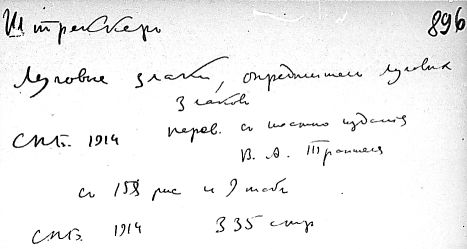 Штреккеръ
896
Луговые злаки, определитель луговых
злаков
СПБ. 1914 перев. съ шестого издания
В. А. Траншеля
съ 158 рис и 9 табл
СПБ. 1914 335 стр